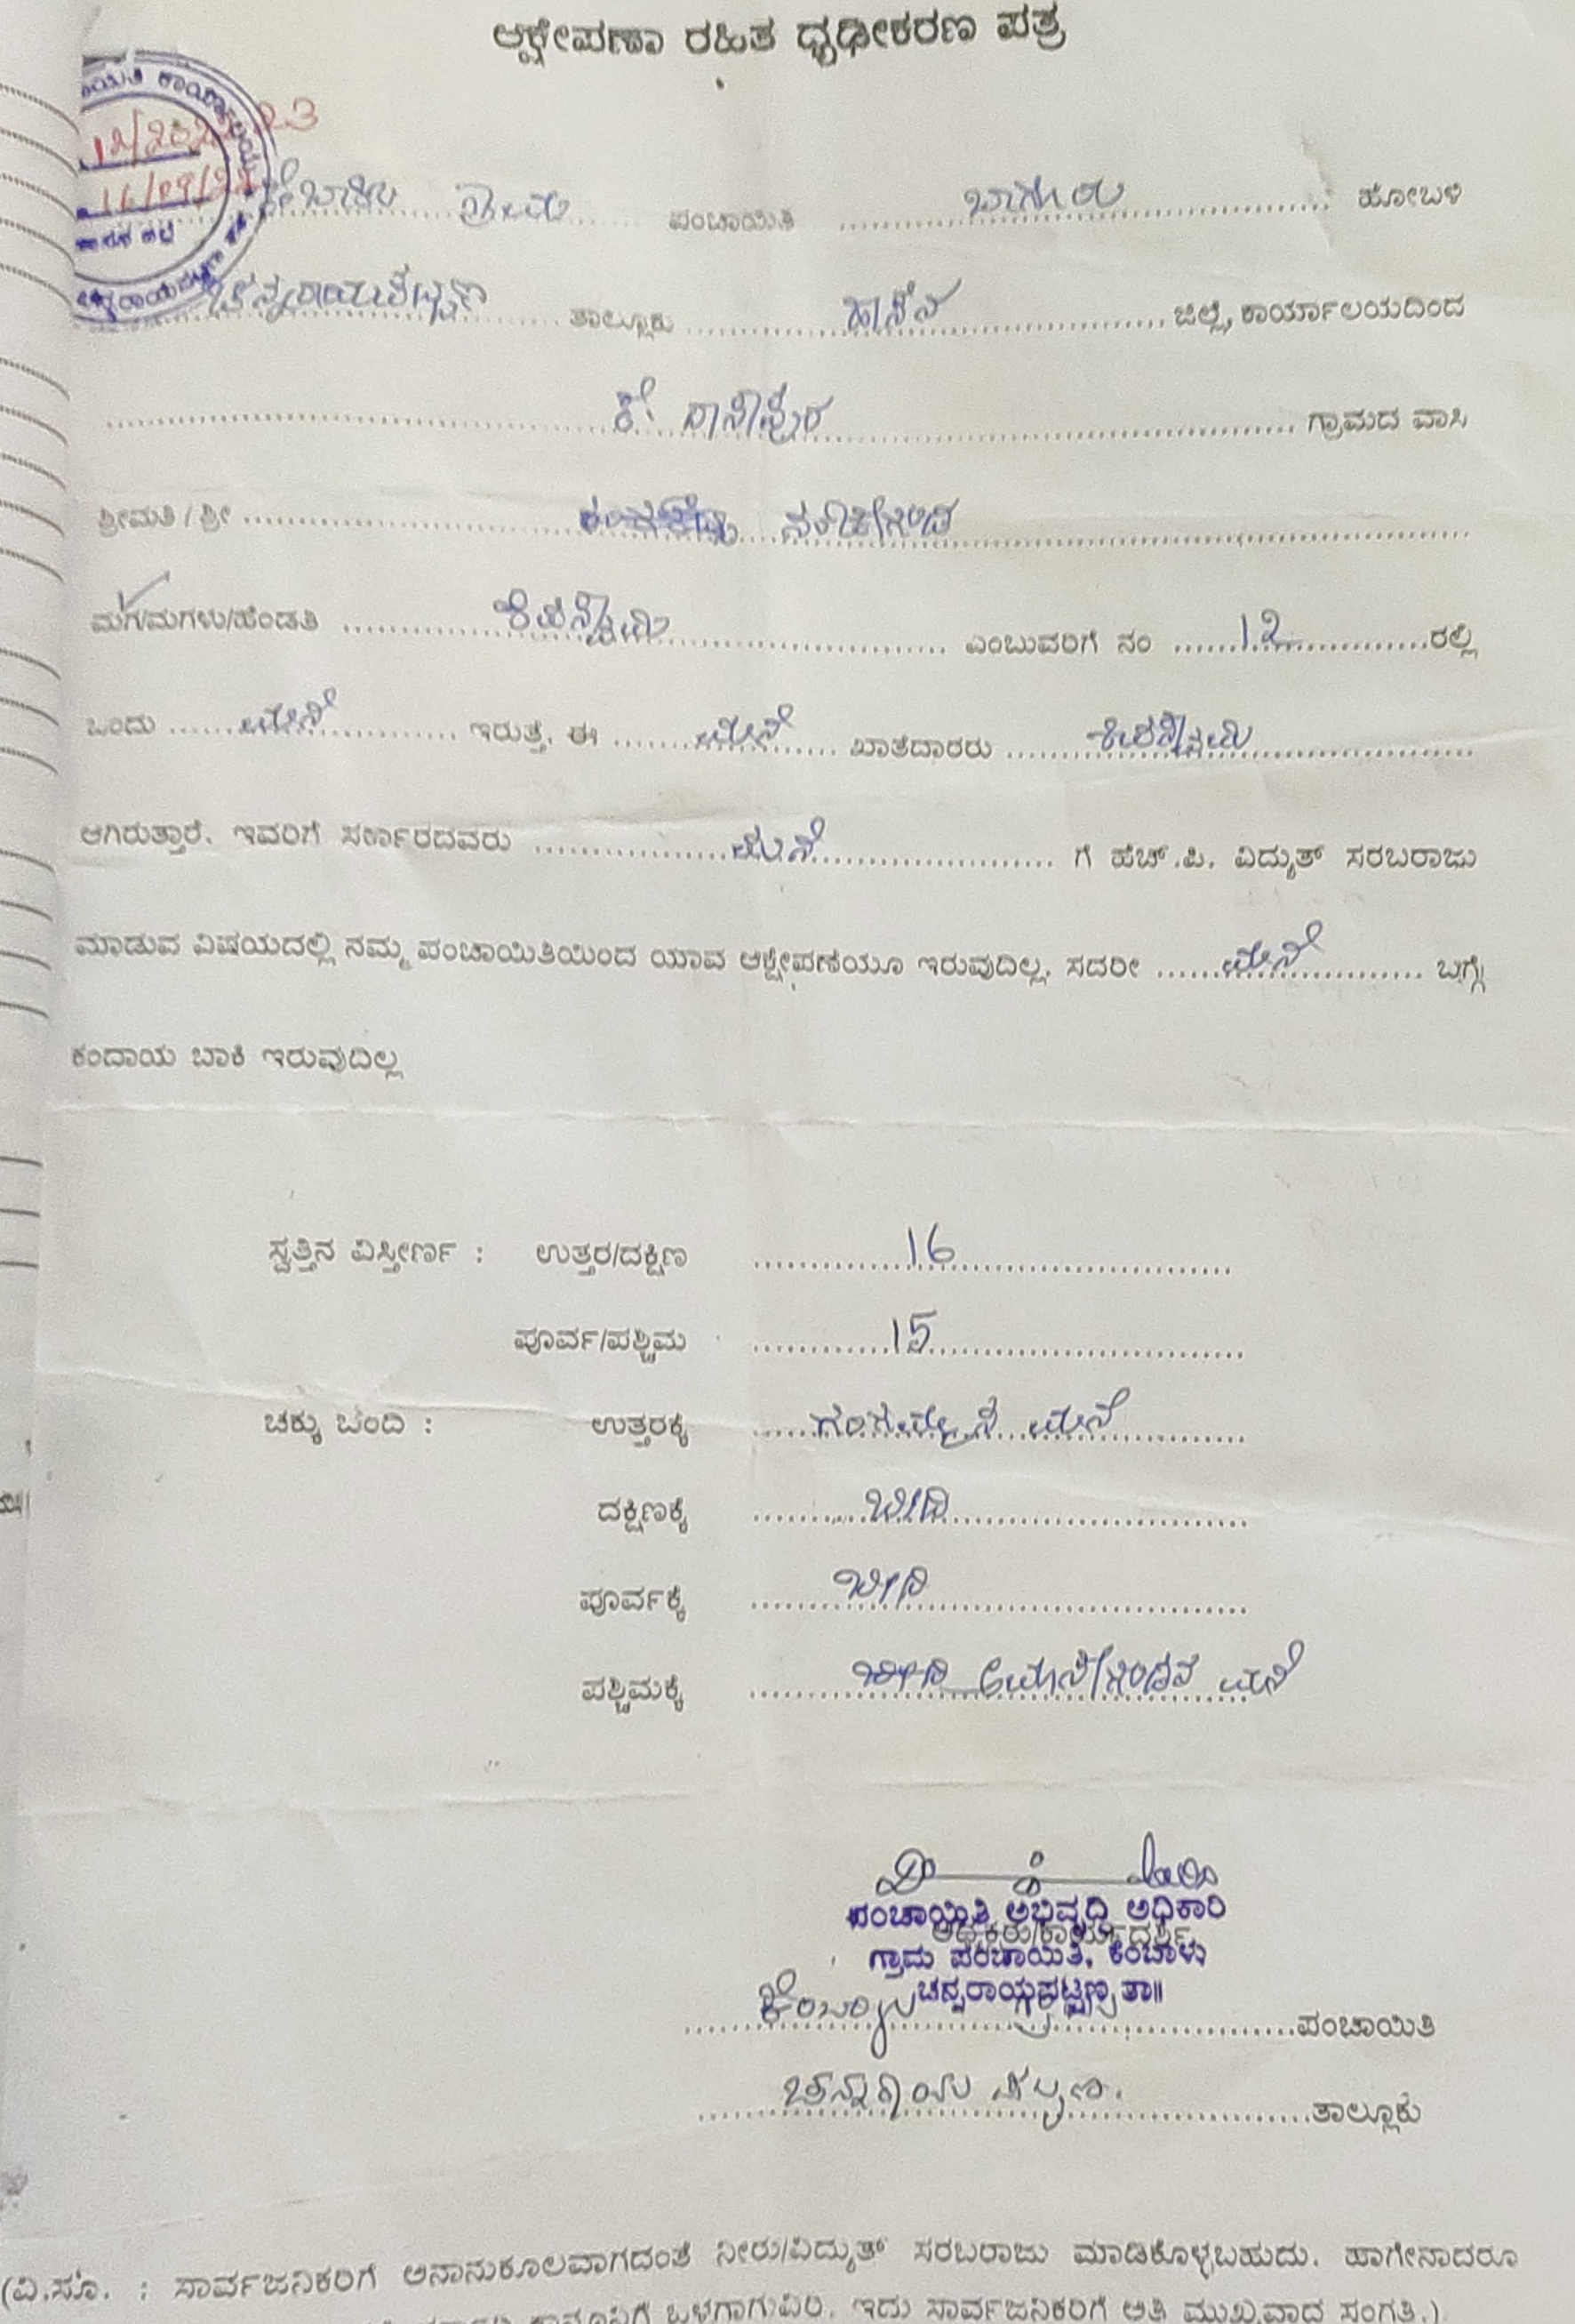 ಆಕ್ಷೇಪಣಾ ರಹಿತ ಧೃಢೀಕರಣ ಪತ್ರ
12/2022-23
16/09/22
ಗ್ರಾಮ ಪಂಚಾಯಿತಿ ಬಾಗೂರು ಹೋಬಳಿ
ಚನ್ನರಾಯಪಟ್ಟಣ ತಾಲ್ಲೂಕು ಹಾಸನ ಜಿಲ್ಲೆ, ಕಾರ್ಯಾಲಯದಿಂದ
ಕೆ. ದಾಸಾಪುರ ಗ್ರಾಮದ ವಾಸಿ
ಶ್ರೀಮತಿ / ಶ್ರೀ ನಂಜೇಗೌಡ
ಮಗ/ಮಗಳು/ಹೆಂಡತಿ ಎಂಬುವರಿಗೆ ನಂ 12 ರಲ್ಲಿ
ಒಂದು ಮನೆ ಇರುತ್ತೆ. ಈ ಮನೆ ಖಾತೆದಾರರು
ಆಗಿರುತ್ತಾರೆ. ಇವರಿಗೆ ಸರ್ಕಾರದವರು ಮನೆ ಗೆ ಹೆಚ್.ಪಿ. ವಿದ್ಯುತ್ ಸರಬರಾಜು
ಮಾಡುವ ವಿಷಯದಲ್ಲಿ ನಮ್ಮ ಪಂಚಾಯಿತಿಯಿಂದ ಯಾವ ಆಕ್ಷೇಪಣೆಯೂ ಇರುವುದಿಲ್ಲ. ಸದರೀ ಮನೆ ಬಗ್ಗೆ
ಕಂದಾಯ ಬಾಕಿ ಇರುವುದಿಲ್ಲ
ಸ್ವತ್ತಿನ ವಿಸ್ತೀರ್ಣ : ಉತ್ತರ/ದಕ್ಷಿಣ 16
ಪೂರ್ವ/ಪಶ್ಚಿಮ 15
ಚಕ್ಕು ಬಂದಿ : ಉತ್ತರಕ್ಕೆ ಗಂಗಮ್ಮನ ಮನೆ
ದಕ್ಷಿಣಕ್ಕೆ ಬೀದಿ
ಪೂರ್ವಕ್ಕೆ ಬೀದಿ
ಪಶ್ಚಿಮಕ್ಕೆ ಮನೆ
ಪಂಚಾಯಿತಿ ಅಭಿವೃದ್ಧಿ ಅಧಿಕಾರಿ
ಅಧ್ಯಕ್ಷರು/ಕಾರ್ಯದರ್ಶಿ
ಗ್ರಾಮ ಪಂಚಾಯಿತಿ, ಕೆಂಬಾಳು
ಚನ್ನರಾಯಪಟ್ಟಣ ತಾ॥
ಕೆಂಬಾಳು ಗ್ರಾ ಪಂಚಾಯಿತಿ
ಚನ್ನರಾಯಪಟ್ಟಣ. ತಾಲ್ಲೂಕು
(ವಿ.ಸೂ. : ಸಾರ್ವಜನಿಕರಿಗೆ ಅನಾನುಕೂಲವಾಗದಂತೆ ನೀರು/ವಿದ್ಯುತ್ ಸರಬರಾಜು ಮಾಡಿಕೊಳ್ಳಬಹುದು. ಹಾಗೇನಾದರೂ
ಒಳಗಾಗುವಿರಿ. ಇದು ಸಾರ್ವಜನಿಕರಿಗೆ ಅತಿ ಮುಖ್ಯವಾದ ಸಂಗತಿ.)